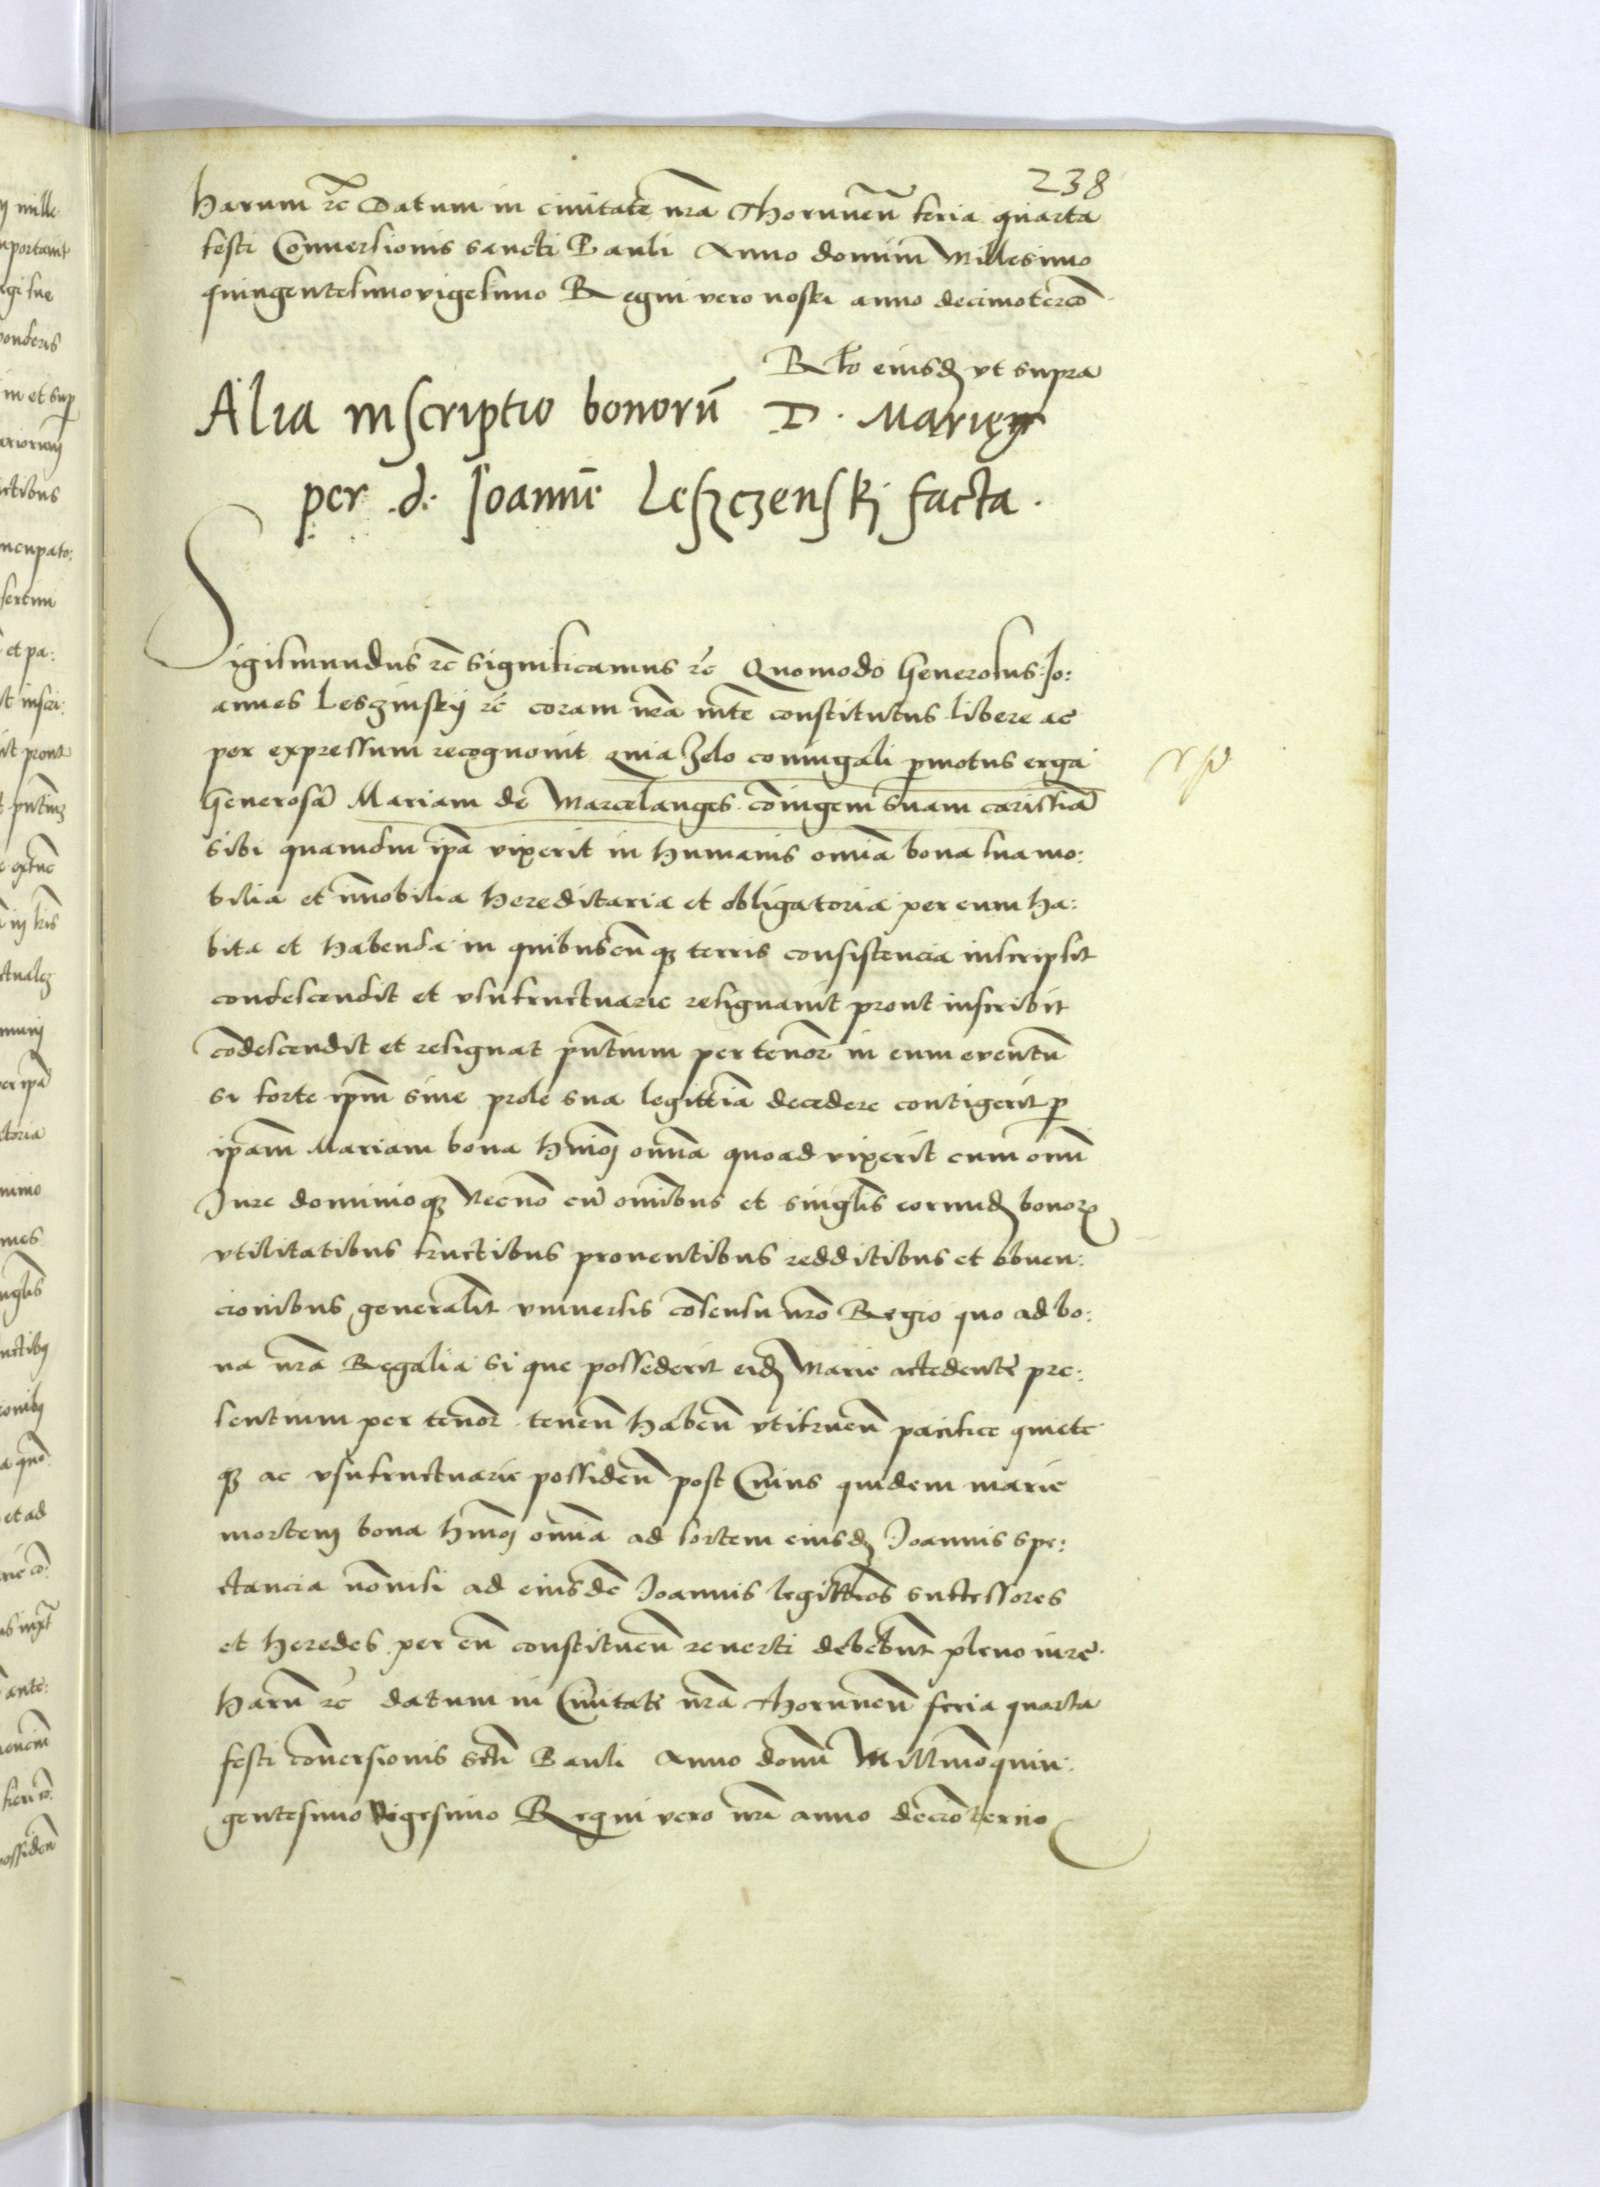 238
Harum rc Datum in ciuitate nra Thorunen feria quarta
festi Conuersionis sancti Pauli Anno domini Millesimo
quingentesimovigesimo Regni vero nostri anno decimotercio
Rlo eiusd vt supra
Alia inscriptio bonorū D. Marię
per .d. Joannē Leszczenskj facta.
Sigismundus rc significamus rc Quomodo Generosus Jo:
annes Leszinskij rc coram nra mte constitutus libere ac
per expressum recognouit quia zelo coniugali pmotus erga
Generosā Mariam de Marcelanges coniugem suam carissiā
sibi quamdiu ipā vixerit in humanis omia bona sua mo:
bilia et imobilia hereditaria et obligatoria per eum ha:
bita et habenda in quibuscūqz terris consistencia inscripsit
condescendit et vsufructuarie resignauit prout inscribit
cōdescendit et resignat pntium per tenor in eum euentū
si forte ipm sine prole sua legittīa decedere contigerit p
ipam Mariam bona hmoj omnia quoad vixerit cum omi
Jure dominioqz Necnō cū omibus et singlis eorund bonor
vtilitatibus fructibus prouentibus redditibus et obuen:
cionibus generalit vniuersis cōsensu nro Regio quo ad bo:
na nra Regalia si que possederit eid Marie accedente pre:
sentium per tenor tenen haben vtifruen pacifice quiete
qz ac vsufructuarie possiden post Cuius quidem marie
mortem bona hmoj omia ad sortem eiusd Joannis spe:
ctancia nonnisi ad eiusdē Joannis legittīos successores
et heredes per eū constituen reuerti debebunt pleno iure
Harū rc datum in Ciuitate nra thorunen feria quarta
festi cōuersionis scti Pauli Anno domi Millmoquin:
gentesimo Vigesimo Regni vero nri anno deciotercio